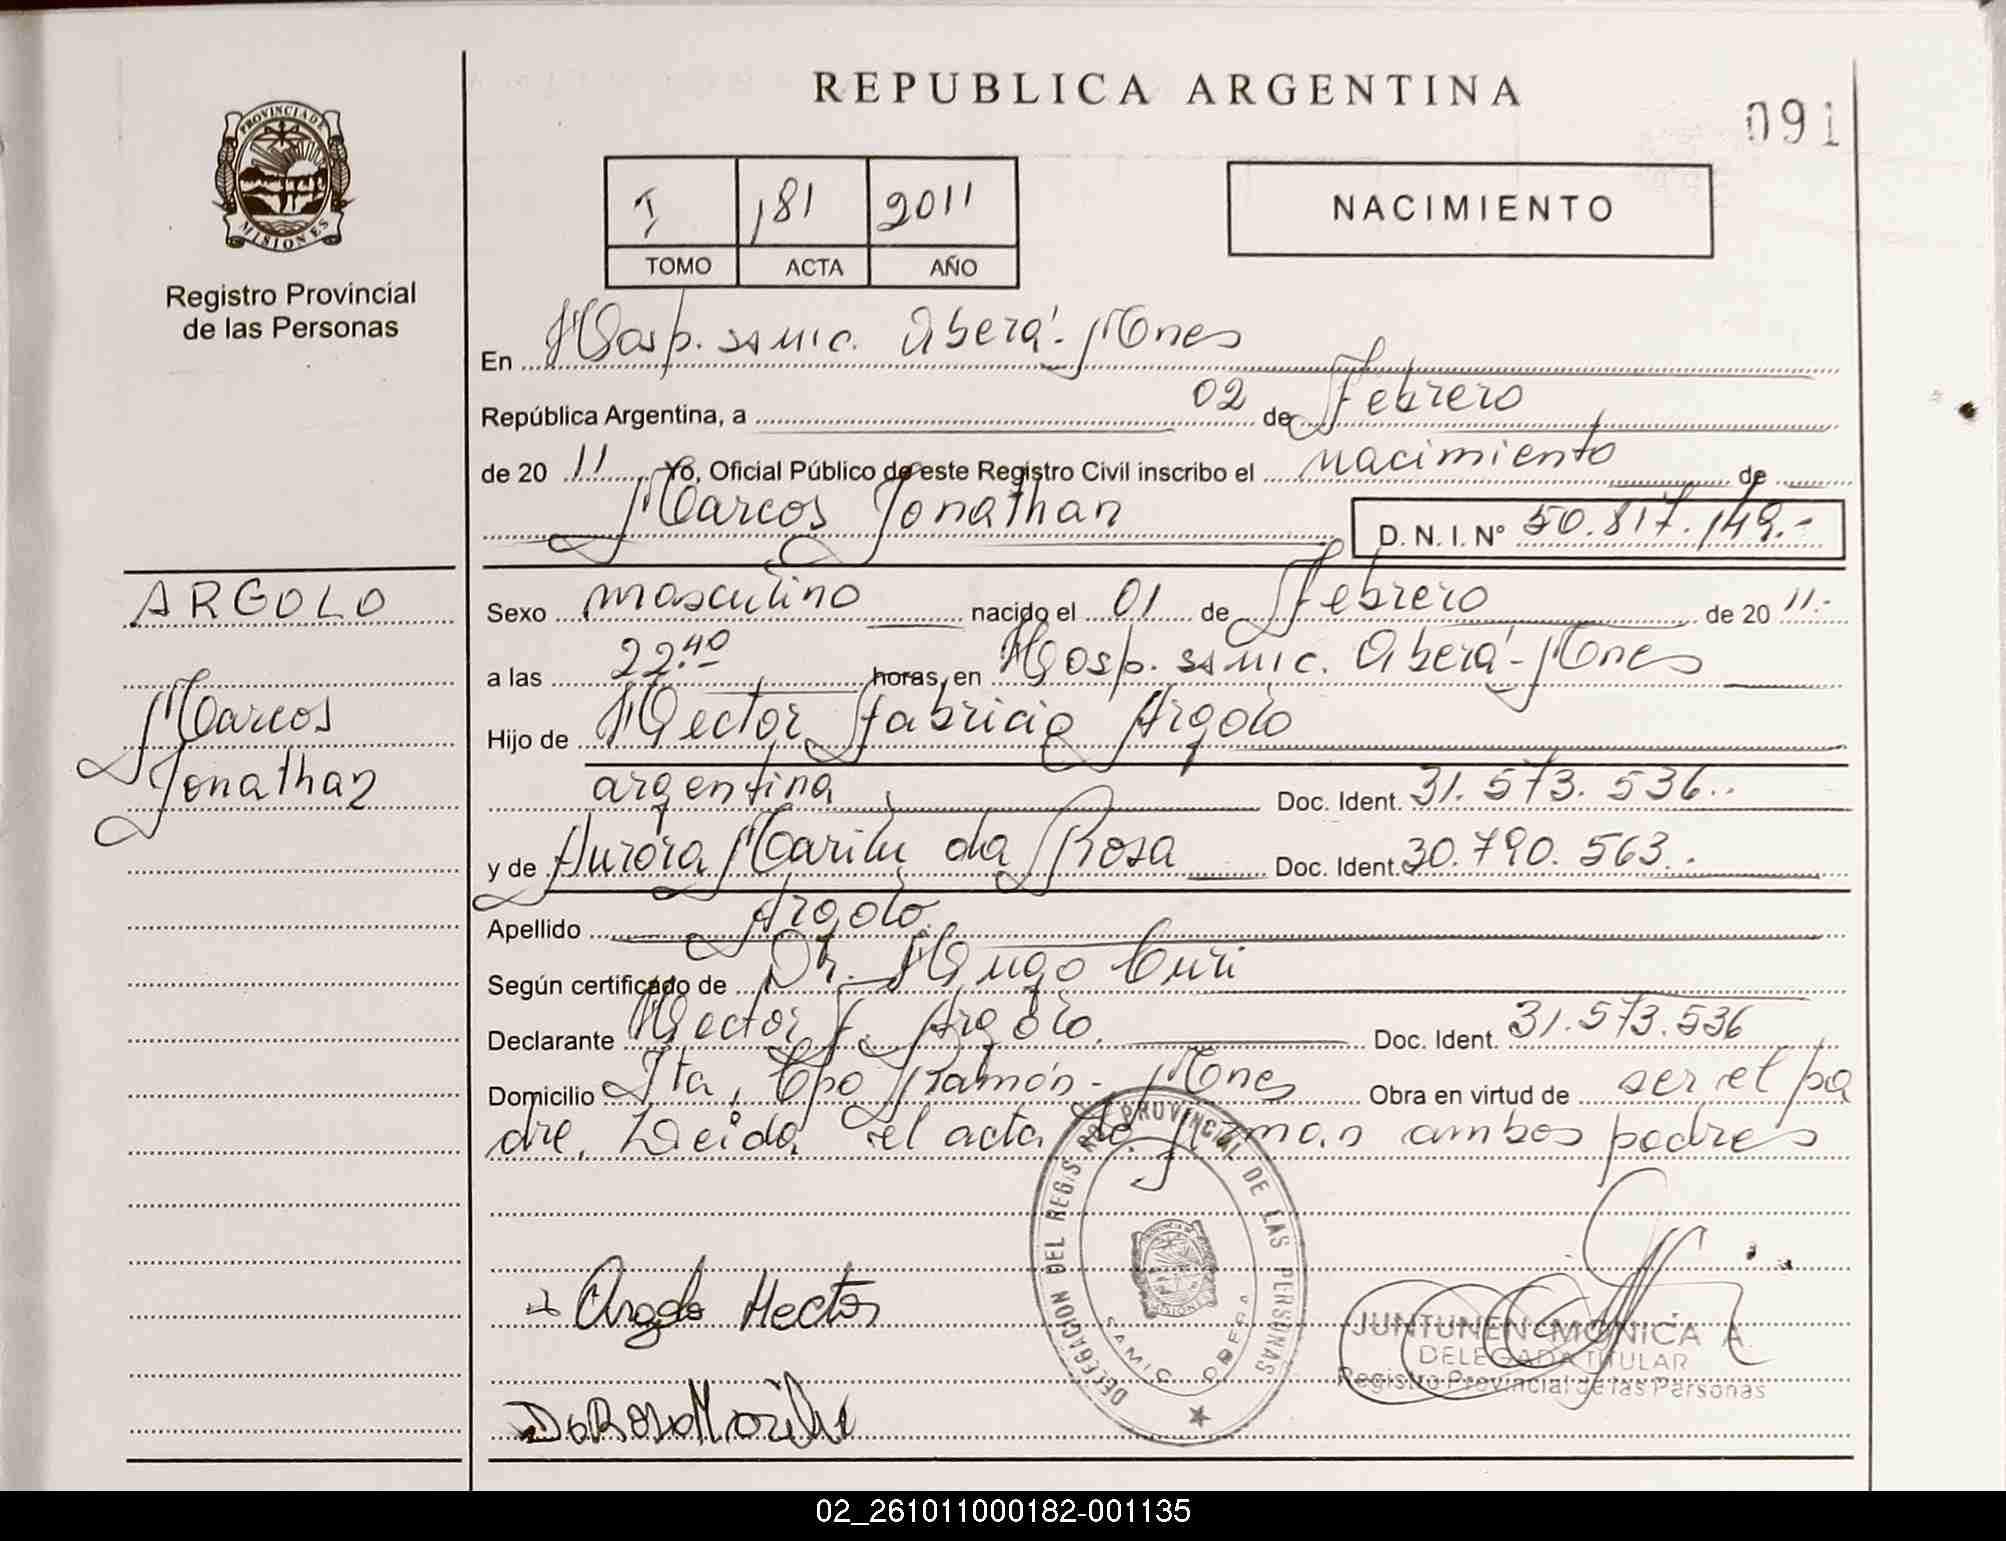 REPUBLICA ARGENTINA
091
PROVINCIA DE
MISIONES
Registro Provincial
de las Personas
I 181 2011
TOMO ACTA AÑO
NACIMIENTO
En Hosp. SAMIC. Oberá - Mnes
República Argentina, a 02 de Febrero
de 20 11 Yo, Oficial Público de este Registro Civil inscribo el nacimiento de
Marcos Jonathan D. N. I. Nº 50.817.149.-
ARGOLO
Marcos
Jonathan
Sexo masculino nacido el 01 de Febrero de 20 11.-
a las 22.40 horas, en Hosp. SAMIC. Oberá - Mnes
Hijo de Hector Fabricio Argolo
argentina Doc. Ident. 31.573.536..
y de Aurora Marilu da Rosa Doc. Ident. 30.790.563..
Apellido Argolo.
Según certificado de Dr. Hugo Curi
Declarante Hector F. Argolo. Doc. Ident. 31.573.536
Domicilio Pta, Cpo Ramón - Mnes Obra en virtud de ser el pa
dre. Leida el acta la firman ambos padres
DELEGACION DEL REGISTRO PROVINCIAL DE LAS PERSONAS
MISIONES
SAMIC OBERA
Argolo Hector
Da Rosa Marilu
JUNTUNEN MONICA A.
DELEGADA TITULAR
Registro Provincial de las Personas
02_261011000182-001135